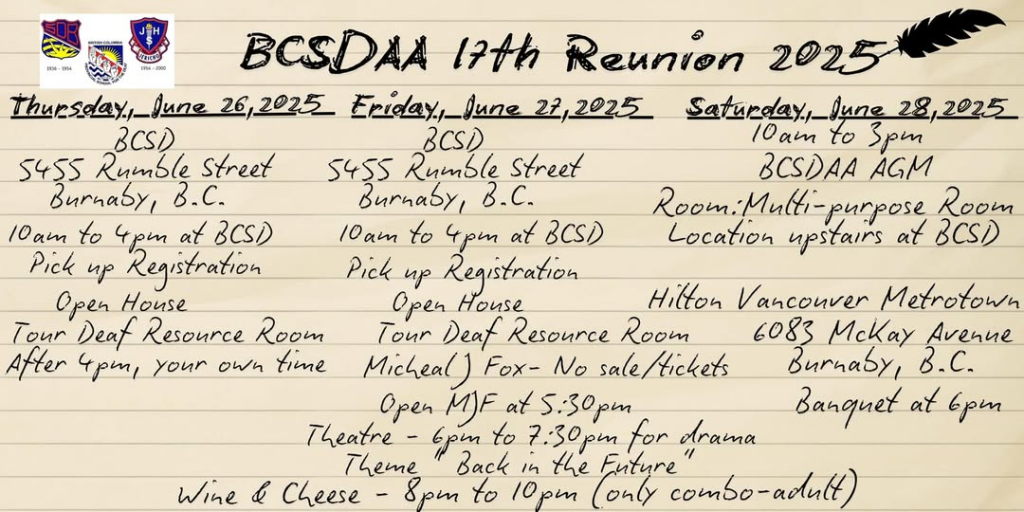 BCSDAA 17th Reunion 2025
SDB
1936 - 1954
BRITISH COLUMBIA
JHS
JERICHO
1954 - 2000
Thursday, June 26, 2025
BCSD
5455 Rumble Street
Burnaby, B.C.
10am to 4pm at BCSD
Pick up Registration
Open House
Tour Deaf Resource Room
After 4pm, your own time
Friday, June 27, 2025
BCSD
5455 Rumble Street
Burnaby, B.C.
10am to 4pm at BCSD
Pick up Registration
Open House
Tour Deaf Resource Room
Micheal J Fox- No sale/tickets
Open MJF at 5:30pm
Theatre - 6pm to 7:30pm for drama
Theme " Back in the Future"
Wine & Cheese - 8pm to 10pm (only combo-adult)
Saturday, June 28, 2025
10am to 3pm
BCSDAA AGM
Room:Multi-purpose Room
Location upstairs at BCSD
Hilton Vancouver Metrotown
6083 McKay Avenue
Burnaby, B.C.
Banquet at 6pm